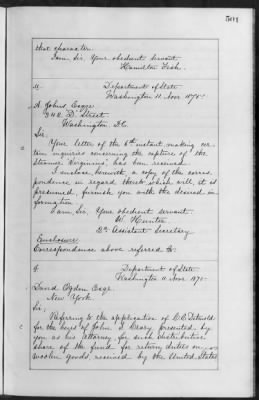 501
that character.
I am, Sir, Your obedient servant
Hamilton Fish.
Department of State
Washington 11 Novr 1875
A. Johns Esqre
"D" Street.
Washington, D.C.
Sir,
Your letter of the 6th instant, making cer-
tain inquiries concerning the capture of the
Steamer "Virginius", has been received.
I enclose, herewith, a copy of the corres-
pondence in regard thereto which will, it is
presumed, furnish you with the desired in-
formation.
I am, Sir, Your obedient servant.
W. Hunter
2d Assistant Secretary
Enclosure
Correspondence above referred to.
Department of State
Washington 11 Novr 1875
David Ogden Esqr.
New York
Sir,
Referring to the application of
for the heirs of John Leary, presented by
you as his attorney for such distributive
share of the fund for return duties on
woolen goods, received by the United States